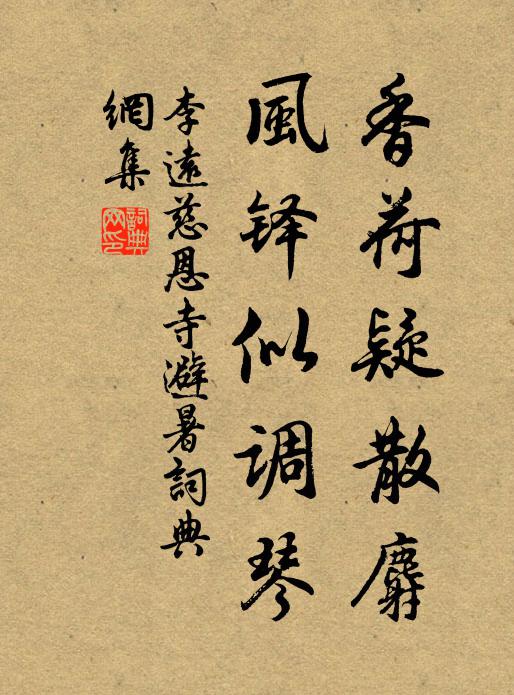 香荷疑散麝
風铎似调琴
李遠慈恩寺避暑詞典
網集
詞典
网印